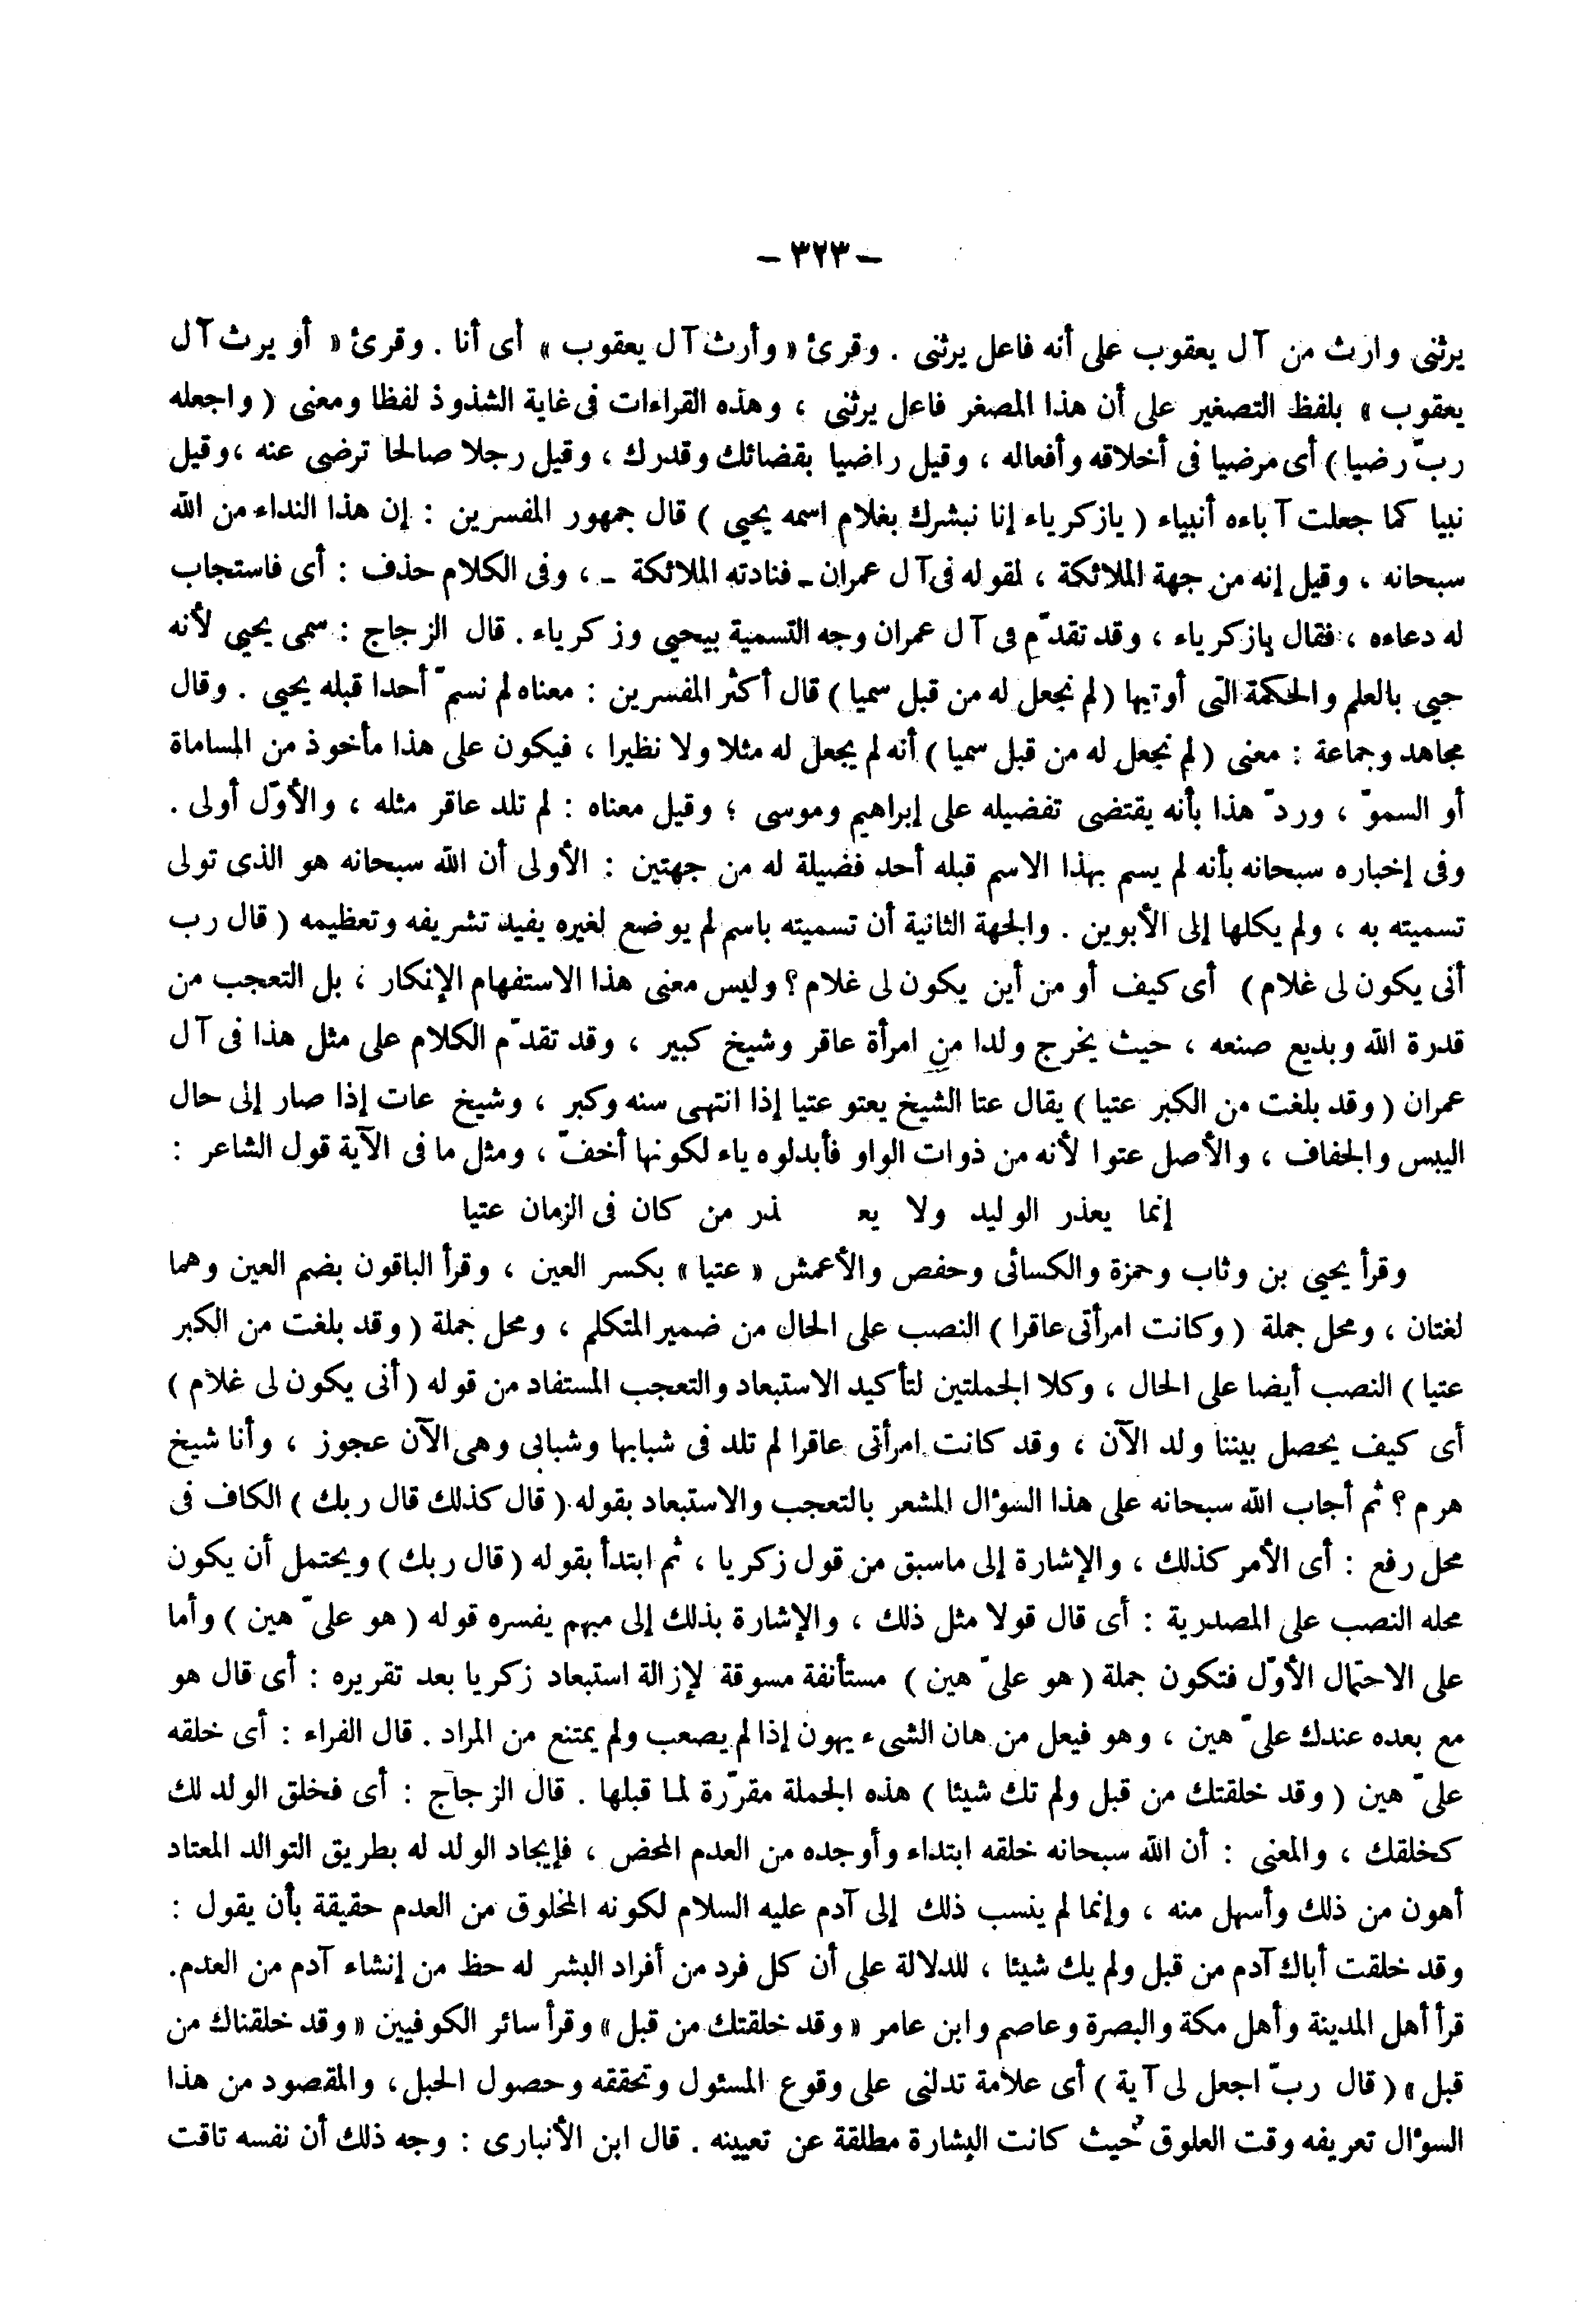 – ٣٢٣ –
يرثنى وارث من آل يعقوب على أنه فاعل يرثنى . وقرئ « وأرث آل يعقوب » أى أنا . وقرئ « أو يرث آل
يعقوب » بلفظ التصغير على أن هذا المصغر فاعل يرثنى ، وهذه القراءات فى غاية الشذوذ لفظا ومعنى ( واجعله
ربّ رضيا ) أى مرضيا فى أخلاقه وأفعاله ، وقيل راضيا بقضائك وقدرك ، وقيل رجلا صالحا ترضى عنه ، وقيل
نبيا كما جعلت آباءه أنبياء ( يازكرياء إنا نبشرك بغلام اسمه يحيى ) قال جمهور المفسرين : إن هذا النداء من الله
سبحانه ، وقيل إنه من جهة الملائكة ، لقوله فى آل عمران ـ فنادته الملائكة ـ ، وفى الكلام حذف : أى فاستجاب
له دعاءه ، فقال يازكرياء ، وقد تقدّم فى آل عمران وجه التسمية بيحيى وزكرياء . قال الزجاج : سمى يحيى لأنه
حيى بالعلم والحكمة التى أوتيها ( لم نجعل له من قبل سميا ) قال أكثر المفسرين : معناه لم نسمّ أحدا قبله يحيى . وقال
مجاهد وجماعة : معنى ( لم نجعل له من قبل سميا ) أنه لم يجعل له مثلا ولا نظيرا ، فيكون على هذا مأخوذ من المساماة
أو السموّ ، وردّ هذا بأنه يقتضى تفضيله على إبراهيم وموسى ؛ وقيل معناه : لم تلد عاقر مثله ، والأوّل أولى .
وفى إخباره سبحانه بأنه لم يسم بهذا الاسم قبله أحد فضيلة له من جهتين : الأولى أن الله سبحانه هو الذى تولى
تسميته به ، ولم يكلها إلى الأبوين . والجهة الثانية أن تسميته باسم لم يوضع لغيره يفيد تشريفه وتعظيمه ( قال رب
أنى يكون لى غلام ) أى كيف أو من أين يكون لى غلام ؟ وليس معنى هذا الاستفهام الإنكار ، بل التعجب من
قدرة الله وبديع صنعه ، حيث يخرج ولدا من امرأة عاقر وشيخ كبير ، وقد تقدّم الكلام على مثل هذا فى آل
عمران ( وقد بلغت من الكبر عتيا ) يقال عتا الشيخ يعتو عتيا إذا انتهى سنه وكبر ، وشيخ عات إذا صار إلى حال
اليبس والجفاف ، والأصل عتوا لأنه من ذوات الواو فأبدلوه ياء لكونها أخفّ ، ومثل ما فى الآية قول الشاعر :
إنما يعذر الوليد ولا يعـ ـذر من كان فى الزمان عتيا
وقرأ يحيى بن وثاب وحمزة والكسائى وحفص والأعمش « عتيا » بكسر العين ، وقرأ الباقون بضم العين وهما
لغتان ، ومحل جملة ( وكانت امرأتى عاقرا ) النصب على الحال من ضمير المتكلم ، ومحل جملة ( وقد بلغت من الكبر
عتيا ) النصب أيضا على الحال ، وكلا الجملتين لتأكيد الاستبعاد والتعجب المستفاد من قوله ( أنى يكون لى غلام )
أى كيف يحصل بيننا ولد الآن ، وقد كانت امرأتى عاقرا لم تلد فى شبابها وشبابى وهى الآن عجوز ، وأنا شيخ
هرم ؟ ثم أجاب الله سبحانه على هذا السؤال المشعر بالتعجب والاستبعاد بقوله ( قال كذلك قال ربك ) الكاف فى
محل رفع : أى الأمر كذلك ، والإشارة إلى ماسبق من قول زكريا ، ثم ابتدأ بقوله ( قال ربك ) ويحتمل أن يكون
محله النصب على المصدرية : أى قال قولا مثل ذلك ، والإشارة بذلك إلى مبهم يفسره قوله ( هو علىّ هين ) وأما
على الاحتمال الأوّل فتكون جملة ( هو علىّ هين ) مستأنفة مسوقة لإزالة استبعاد زكريا بعد تقريره : أى قال هو
مع بعده عندك علىّ هين ، وهو فيعل من هان الشىء يهون إذا لم يصعب ولم يمتنع من المراد . قال الفراء : أى خلقه
علىّ هين ( وقد خلقتك من قبل ولم تك شيئا ) هذه الجملة مقرّرة لما قبلها . قال الزجاج : أى فخلق الولد لك
كخلقك ، والمعنى : أن الله سبحانه خلقه ابتداء وأوجده من العدم المحض ، فإيجاد الولد له بطريق التوالد المعتاد
أهون من ذلك وأسهل منه ، وإنما لم ينسب ذلك إلى آدم عليه السلام لكونه المخلوق من العدم حقيقة بأن يقول :
وقد خلقت أباك آدم من قبل ولم يك شيئا ، للدلالة على أن كل فرد من أفراد البشر له حظ من إنشاء آدم من العدم.
قرأ أهل المدينة وأهل مكة والبصرة وعاصم وابن عامر « وقد خلقتك من قبل » وقرأ سائر الكوفيين « وقد خلقناك من
قبل » ( قال ربّ اجعل لى آية ) أى علامة تدلنى على وقوع المسئول وتحققه وحصول الحبل ، والمقصود من هذا
السؤال تعريفه وقت العلوق حيث كانت البشارة مطلقة عن تعيينه . قال ابن الأنبارى : وجه ذلك أن نفسه تاقت